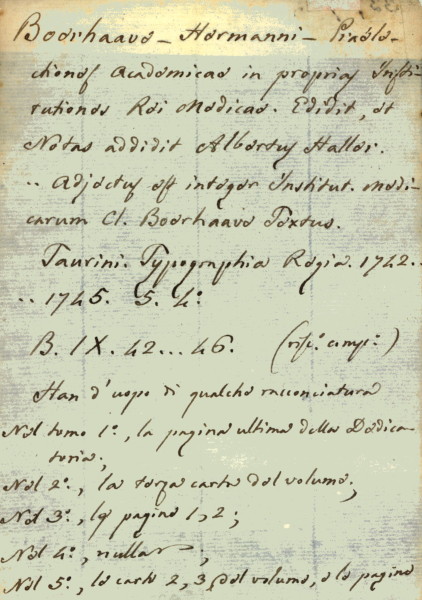 Boerhaave – Hermanni – Prælec-
tiones Academicae in proprias Insti-
tutiones Rei Medicae. Edidit, et
Notas addidit Albertus Haller.
.. Adjectus est integer Institut. Medi-
carum Cl. Boerhaave Textus.
Taurini. Typographia Regia. 1742..
.. 1745. 5. 4.º
B. IX. 42...46. (
Han d'uopo di qualche racconciatura
Nel tomo 1º., la pagina ultima della Dedica-
toria;
Nel 2º., la terza carta del volume;
Nel 3º., le pagine 1, 2;
Nel 4º., nulla;
Nel 5º., le carte 2, 3, del volume, e le pagine